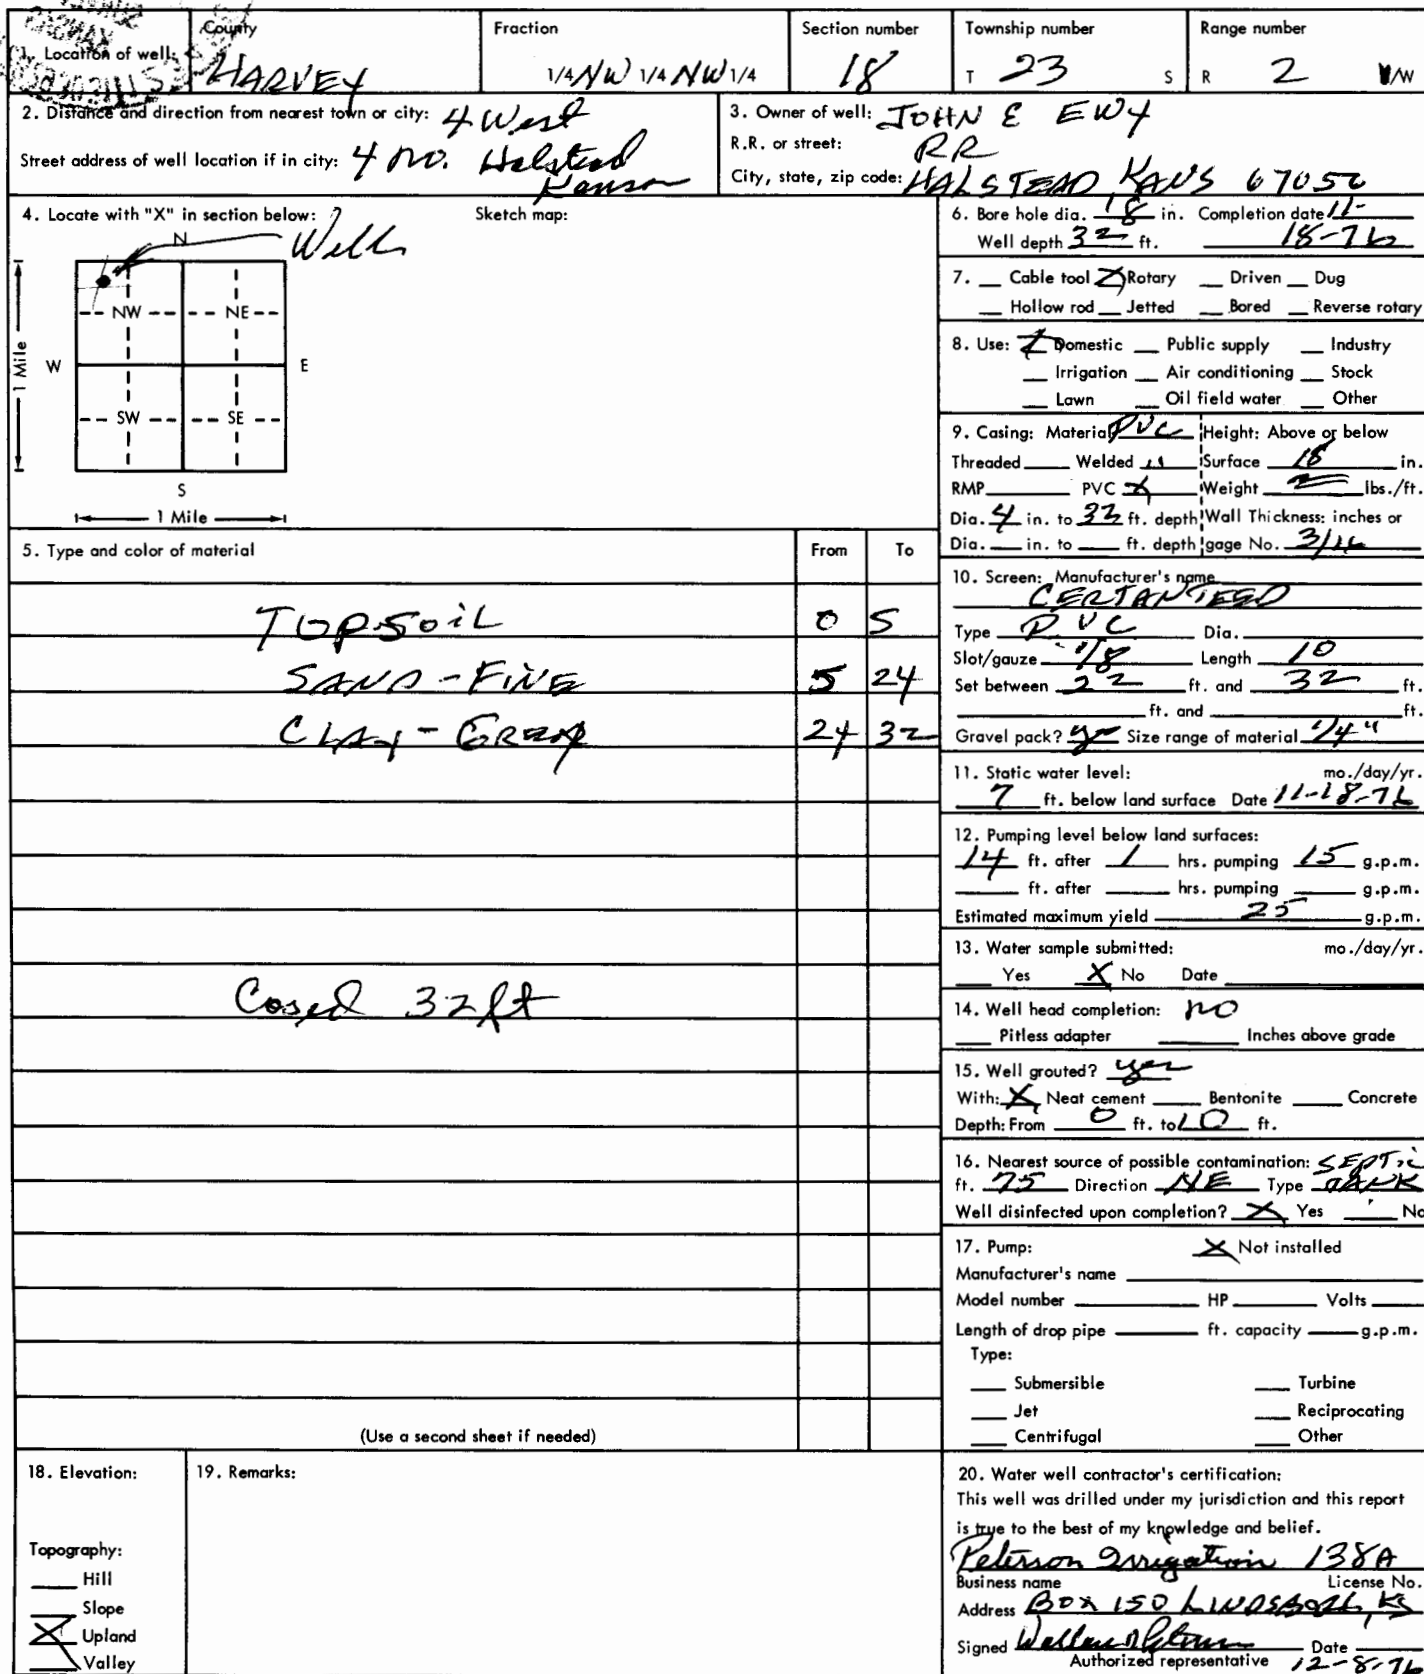 County Fraction Section number Township number Range number
1. Location of well: HARVEY 1/4 NW 1/4 NW 1/4 18 T 23 S R 2 W
2. Distance and direction from nearest town or city: 4 West
Street address of well location if in city: 4 no. Halstead
Kansas
3. Owner of well: JOHN E EWY
R.R. or street: RR
City, state, zip code: HALSTEAD KANS 67056
4. Locate with "X" in section below: Sketch map:
Well
N
NW NE
W E
1 Mile
SW SE
S
1 Mile
5. Type and color of material From To
TOPSOIL 0 5
SAND - FINE 5 24
CLAY - GREEN 24 32
Cased 32 ft
(Use a second sheet if needed)
6. Bore hole dia. 18 in. Completion date 11-
Well depth 32 ft. 18-76
7. Cable tool X Rotary Driven Dug
Hollow rod Jetted Bored Reverse rotary
8. Use: X Domestic Public supply Industry
Irrigation Air conditioning Stock
Lawn Oil field water Other
9. Casing: Material PVC Height: Above or below
Threaded Welded Surface 18 in.
RMP PVC X Weight lbs./ft.
Dia. 4 in. to 32 ft. depth Wall Thickness: inches or
Dia. in. to ft. depth gage No. 3/16
10. Screen: Manufacturer's name
CERTANTEED
Type PVC Dia.
Slot/gauze 1/8 Length 10
Set between 22 ft. and 32 ft.
ft. and ft.
Gravel pack? yes Size range of material 1/4"
11. Static water level: mo./day/yr.
7 ft. below land surface Date 11-18-76
12. Pumping level below land surfaces:
14 ft. after 1 hrs. pumping 15 g.p.m.
ft. after hrs. pumping g.p.m.
Estimated maximum yield 25 g.p.m.
13. Water sample submitted: mo./day/yr.
Yes X No Date
14. Well head completion: no
Pitless adapter Inches above grade
15. Well grouted? yes
With: X Neat cement Bentonite Concrete
Depth: From 0 ft. to 10 ft.
16. Nearest source of possible contamination: SEPTIC
ft. 75 Direction NE Type TANK
Well disinfected upon completion? X Yes No
17. Pump: X Not installed
Manufacturer's name
Model number HP Volts
Length of drop pipe ft. capacity g.p.m.
Type:
Submersible Turbine
Jet Reciprocating
Centrifugal Other
18. Elevation:
Topography:
Hill
Slope
X Upland
Valley
19. Remarks:
20. Water well contractor's certification:
This well was drilled under my jurisdiction and this report
is true to the best of my knowledge and belief.
Peterson Irrigation 138A
Business name License No.
Address BOX 150 LINDSBORG, KS
Signed Date
Authorized representative 12-8-76